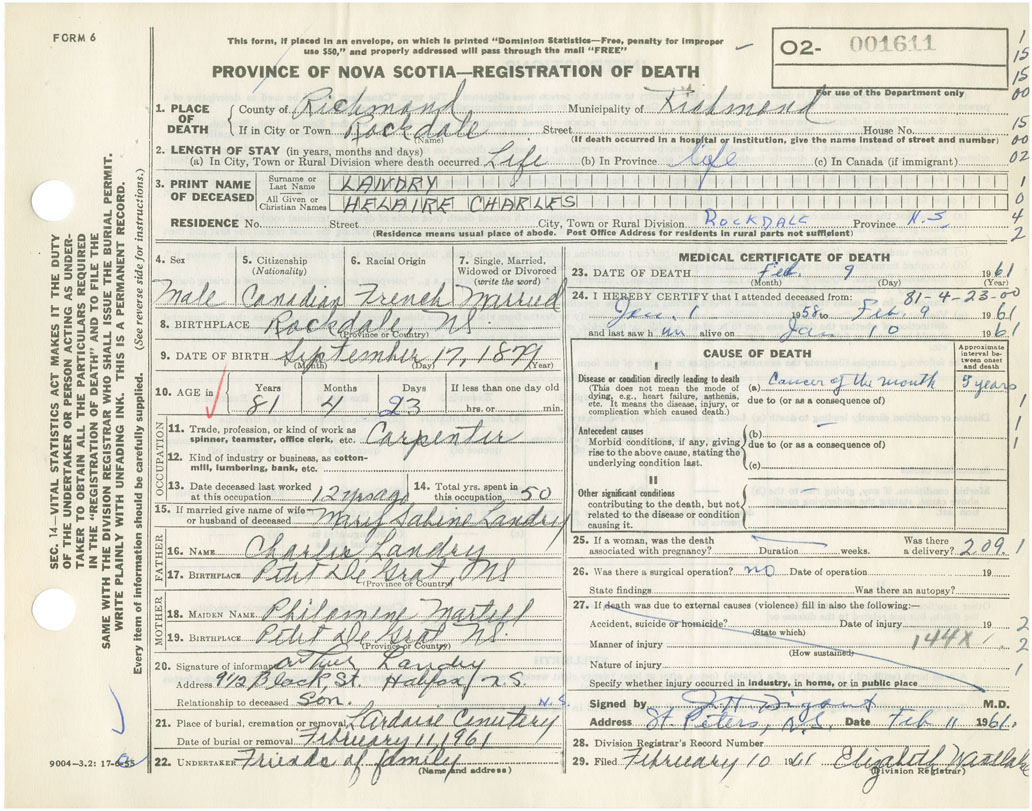 FORM 6
This form, if placed in an envelope, on which is printed "Dominion Statistics—Free, penalty for improper
use $50," and properly addressed will pass through the mail "FREE"
PROVINCE OF NOVA SCOTIA—REGISTRATION OF DEATH
02- 001611
For use of the Department only
1. PLACE OF DEATH
County of Richmond Municipality of Richmond
If in City or Town Rockdale Street House No.
(Name) (If death occurred in a hospital or institution, give the name instead of street and number)
2. LENGTH OF STAY (in years, months and days)
(a) In City, Town or Rural Division where death occurred Life (b) In Province life (c) In Canada (if immigrant)
3. PRINT NAME OF DECEASED
Surname or Last Name LANDRY
All Given or Christian Names HELAIRE CHARLES
RESIDENCE No. Street City, Town or Rural Division ROCKDALE Province N.S
(Residence means usual place of abode. Post Office Address for residents in rural parts not sufficient)
1
15
15
00
15
00
02
1
0
4
2
SEC. 14—VITAL STATISTICS ACT MAKES IT THE DUTY
OF THE UNDERTAKER OR PERSON ACTING AS UNDER-
TAKER TO OBTAIN ALL THE PARTICULARS REQUIRED
IN THE "REGISTRATION OF DEATH" AND TO FILE THE
SAME WITH THE DIVISION REGISTRAR WHO SHALL ISSUE THE BURIAL PERMIT.
WRITE PLAINLY WITH UNFADING INK. THIS IS A PERMANENT RECORD.
Every item of information should be carefully supplied. (See reverse side for instructions.)
4. Sex 5. Citizenship (Nationality) 6. Racial Origin 7. Single, Married, Widowed or Divorced (write the word)
Male Canadian French Married
8. BIRTHPLACE Rockdale, NS.
(Province or Country)
9. DATE OF BIRTH September 17, 1879
(Month) (Day) (Year)
10. AGE in Years Months Days If less than one day old
81 4 23 hrs. or min.
OCCUPATION
11. Trade, profession, or kind of work as
spinner, teamster, office clerk, etc. Carpenter
12. Kind of industry or business, as cotton-
mill, lumbering, bank, etc.
13. Date deceased last worked at this occupation 12 yrs ago 14. Total yrs. spent in this occupation 50
15. If married give name of wife or husband of deceased Mary Sabine Landry
FATHER
16. NAME Charlie Landry
17. BIRTHPLACE Petit De Grat, NS
(Province or Country)
MOTHER
18. MAIDEN NAME Philamine
19. BIRTHPLACE Petit De Grat NS.
(Province or Country)
20. Signature of informant Arthur Landry
Address 9½ Black St. Halifax, N.S.
Relationship to deceased Son.
N.S.
21. Place of burial, cremation or removal L'Ardoise Cemetery
Date of burial or removal February 11, 1961
22. UNDERTAKER Friends of family
(Name and address)
9004-3.2: 17-6-53
MEDICAL CERTIFICATE OF DEATH
23. DATE OF DEATH Feb. 9 1961
(Month) (Day) (Year)
81-4-23-00
24. I HEREBY CERTIFY that I attended deceased from:
Jan. 1 1958 to Feb. 9 1961
and last saw h im alive on Jan 10 1961
CAUSE OF DEATH
Approximate interval between onset and death
I
Disease or condition directly leading to death
(This does not mean the mode of
dying, e.g., heart failure, asthenia,
etc. It means the disease, injury, or
complication which caused death.)
(a) Cancer of the mouth 5 years
due to (or as a consequence of)
Antecedent causes
Morbid conditions, if any, giving
rise to the above cause, stating the
underlying condition last.
(b) —
due to (or as a consequence of)
(c)
II
Other significant conditions
contributing to the death, but not
related to the disease or condition
causing it.
—
1
1
1
1
25. If a woman, was the death associated with pregnancy? Duration weeks. Was there a delivery? 2.09. 1
26. Was there a surgical operation? no Date of operation 19
State findings Was there an autopsy?
27. If death was due to external causes (violence) fill in also the following:—
Accident, suicide or homicide? Date of injury 19 2
(State which)
Manner of injury 144X 2
(How sustained)
Nature of injury 1
Specify whether injury occurred in industry, in home, or in public place
Signed by M.D.
Address St. Peters, N.S. Date Feb 11 1961.
28. Division Registrar's Record Number
29. Filed February 10 1961 Elizabeth
(Division Registrar)